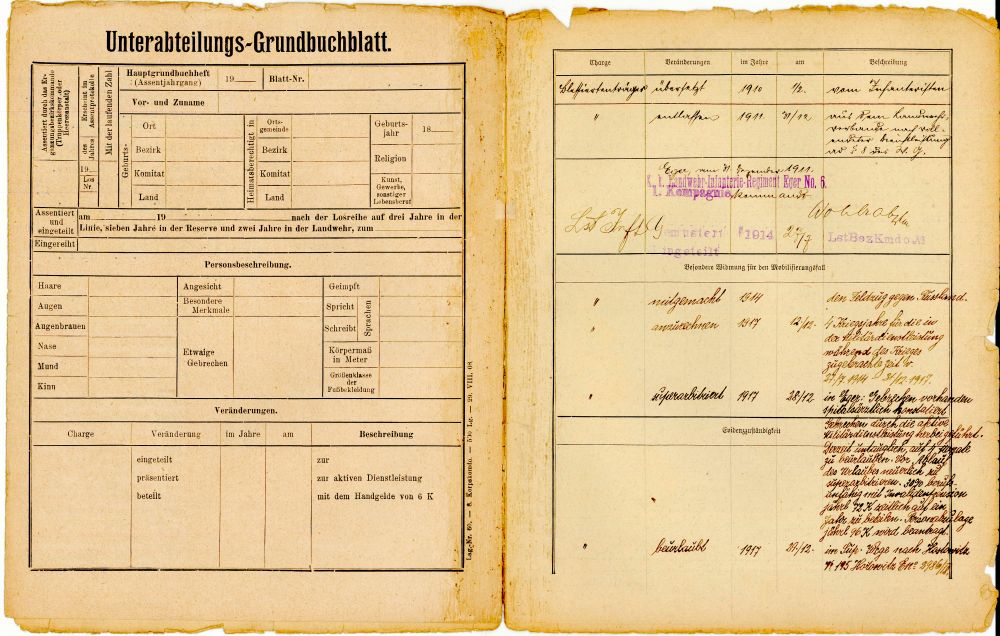 Unterabteilungs-Grundbuchblatt.
Assentiert durch das Ergänzungsbezirkskommando (Truppenkörper oder Heeresanstalt)
Erscheint im Assentprotokolle
des Jahres
19
Los Nr.
Mit der laufenden Zahl
Hauptgrundbuchheft
(Assentjahrgang)
19
Blatt-Nr.
Vor- und Zuname
Geburts-
Ort
Bezirk
Komitat
Land
Heimatsberechtigt in
Ortsgemeinde
Bezirk
Komitat
Land
Geburtsjahr
18
Religion
Kunst, Gewerbe, sonstiger Lebensberuf
Assentiert und eingeteilt
am 19 nach der Losreihe auf drei Jahre in der
Linie, sieben Jahre in der Reserve und zwei Jahre in der Landwehr, zum
Eingereiht
Personsbeschreibung.
Haare
Augen
Augenbrauen
Nase
Mund
Kinn
Angesicht
Besondere Merkmale
Etwaige Gebrechen
Geimpft
Spricht
Schreibt
Sprachen
Körpermaß in Meter
Größenklasse der Fußbekleidung
Veränderungen.
Charge Veränderung im Jahre am Beschreibung
eingeteilt zur
präsentiert zur aktiven Dienstleistung
beteilt mit dem Handgelde von 6 K
Lag.-Nr. 60. — 8. Korpskomdo. — 570 Lg. — 29. VIII. 08.
Charge Veränderungen im Jahre am Beschreibung
Blessiertenträger übersetzt 1910 1/2. vom Infanteristen
" entlassen 1911 31/12. aus dem Landwehr-
verbande nach voll-
endeter Dienstleistung
ad § 8 des W. G.
Eger, am 31. Dezember 1911.
K. k. Landwehr-Infanterie-Regiment Eger No. 6.
Kompagnie
kommandt.
Lst Inft Gemustert 1914 27/7 LstBezKmdo.
eingeteilt
Besondere Widmung für den Mobilisierungsfall
" mitgemacht 1914 den Feldzug gegen Russland.
" anzurechnen 1917 12/12. 4 Kriegsjahre für die in
der Militärdienstleistung
während des Krieges
zugebrachte Zeit v.
27/7. 1914 31/12. 1917.
" superarbitriert 1917 28/12. in Eger: Gebrechen vorhanden
spitalsärztlich konstatiert
Gebrechen durch die aktive
Militärdienstleistung herbeigeführt.
Derzeit untauglich, auf
zu beurlauben. Vor Ablauf
des Urlaubes neuerlich zu
superarbitrieren. 30%
mit Invalidenpension
jährl. 72 K zeitlich auf ein
Jahr zu beteilen. Personalzulage
jährl. 96 K wird beantragt.
Evidenzzuständigkeit
" beurlaubt 1917 im Sup. Wege nach